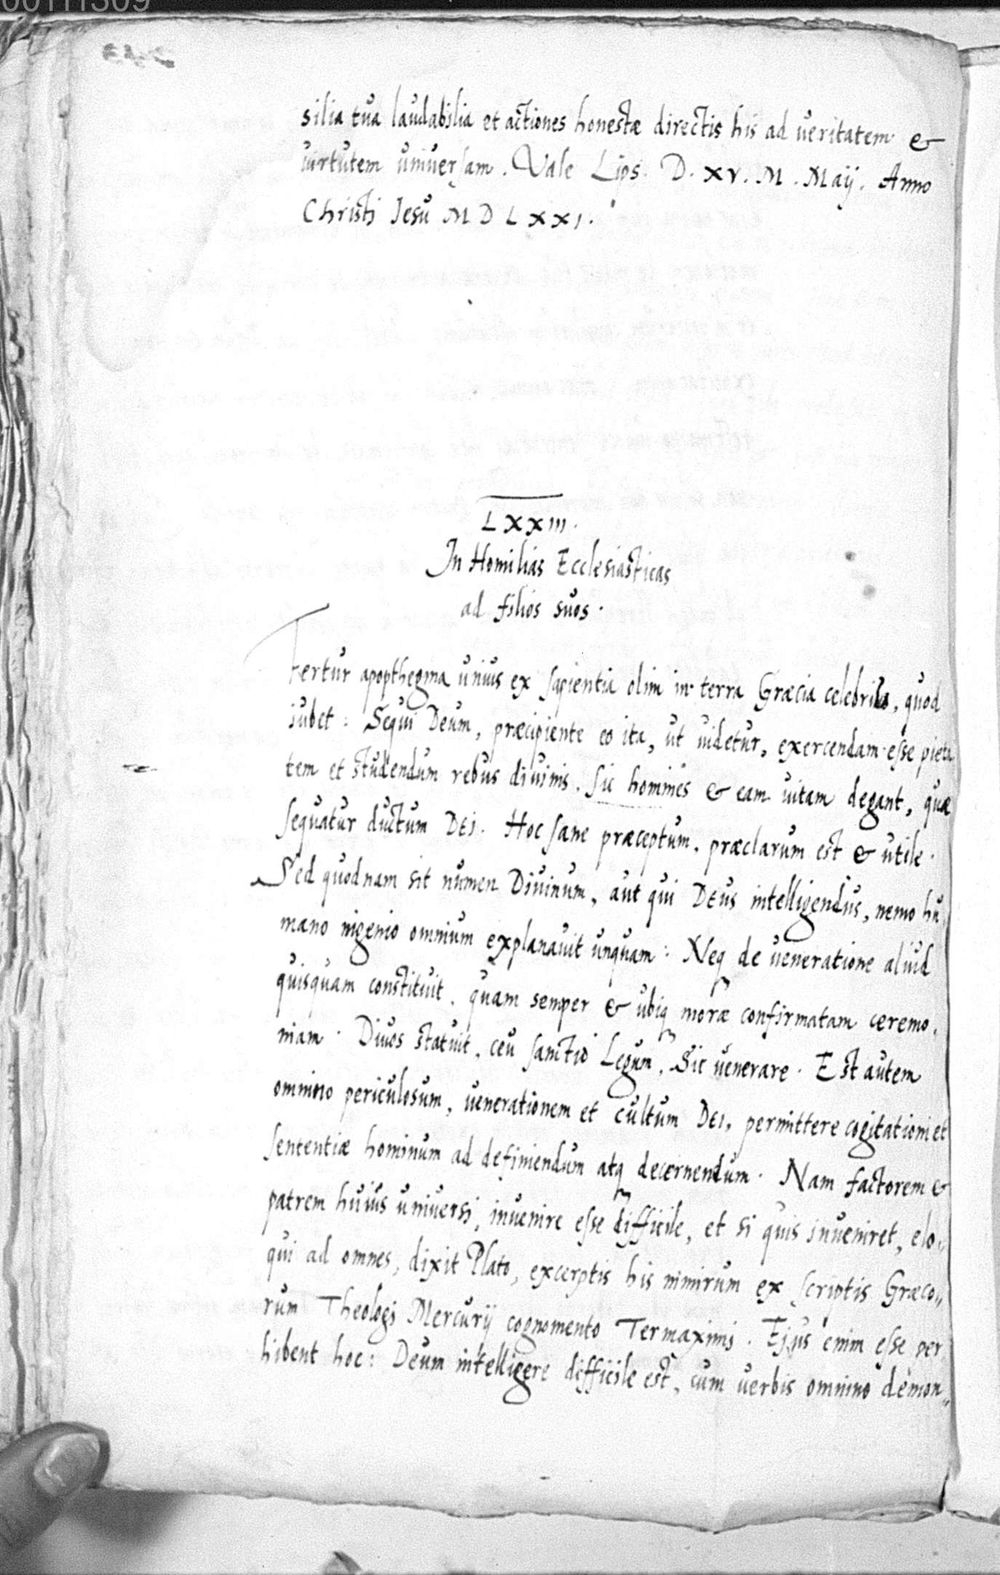 00111309
silia tua laudabilia et actiones honestæ directis his ad veritatem &
virtutem universam. Vale Lips. D. XV. M. Maij. Anno
Christi Jesu M D L X X I.
L X X III.
In Homilias Ecclesiasticas
ad filios suos.
Fertur apopthegma unius ex sapientia olim in terra Græcia celebrib, quod
iubet: Sequi Deum, præcipiente eo ita, ut uidetur, exercendam esse pieta
tem et studendum rebus diuinis. Sic homines & eam uitam degant, quæ
sequatur ductum DEI. Hoc sane præceptum, præclarum est & utile.
Sed quodnam sit numen Divinum, aut qui DEus intelligendus, nemo hu
mano ingenio omnium explanauit unquam: Neq de ueneratione aliud
quisquam constituit, quam semper & ubiq moræ confirmatam ceremo,
niam. Divos statuit, ceu sanctio Legum, Sic uenerare. Est autem
omnino periculosum, uenerationem et cultum DEI, permittere cogitationi et
sententiæ hominum ad definiendum atq decernendum. Nam factorem &
patrem huius universi, inuenire esse difficile, et si quis inueniret, elo,,
qui ad omnes, dixit Plato, excerptis his nimirum ex scriptis Græco,,
rum Theologi Mercurij cognomento Termaximi. Ejus enim esse per
hibent hoc: Deum intelligere difficile est, cum verbis omnino demon,,